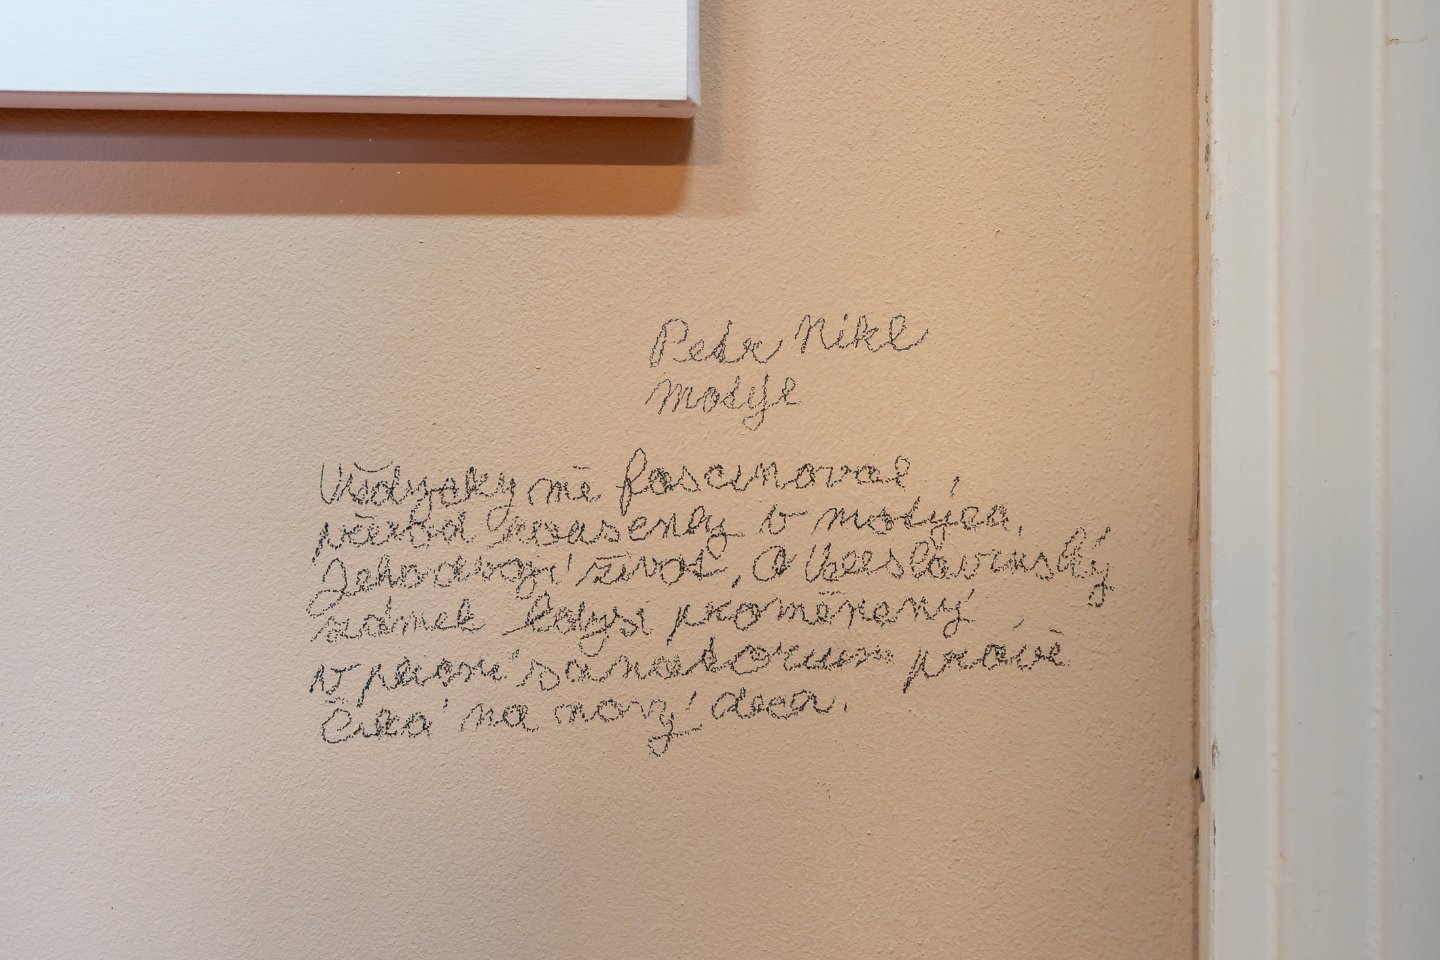 Petr Nikl
Motyl
Vždycky mě fascinoval
přerod housenky v motýla.
Jeho dvojí život. A Veleslavínský
zámek kdysi proměněný
v sanatorium právě
čeká na nový